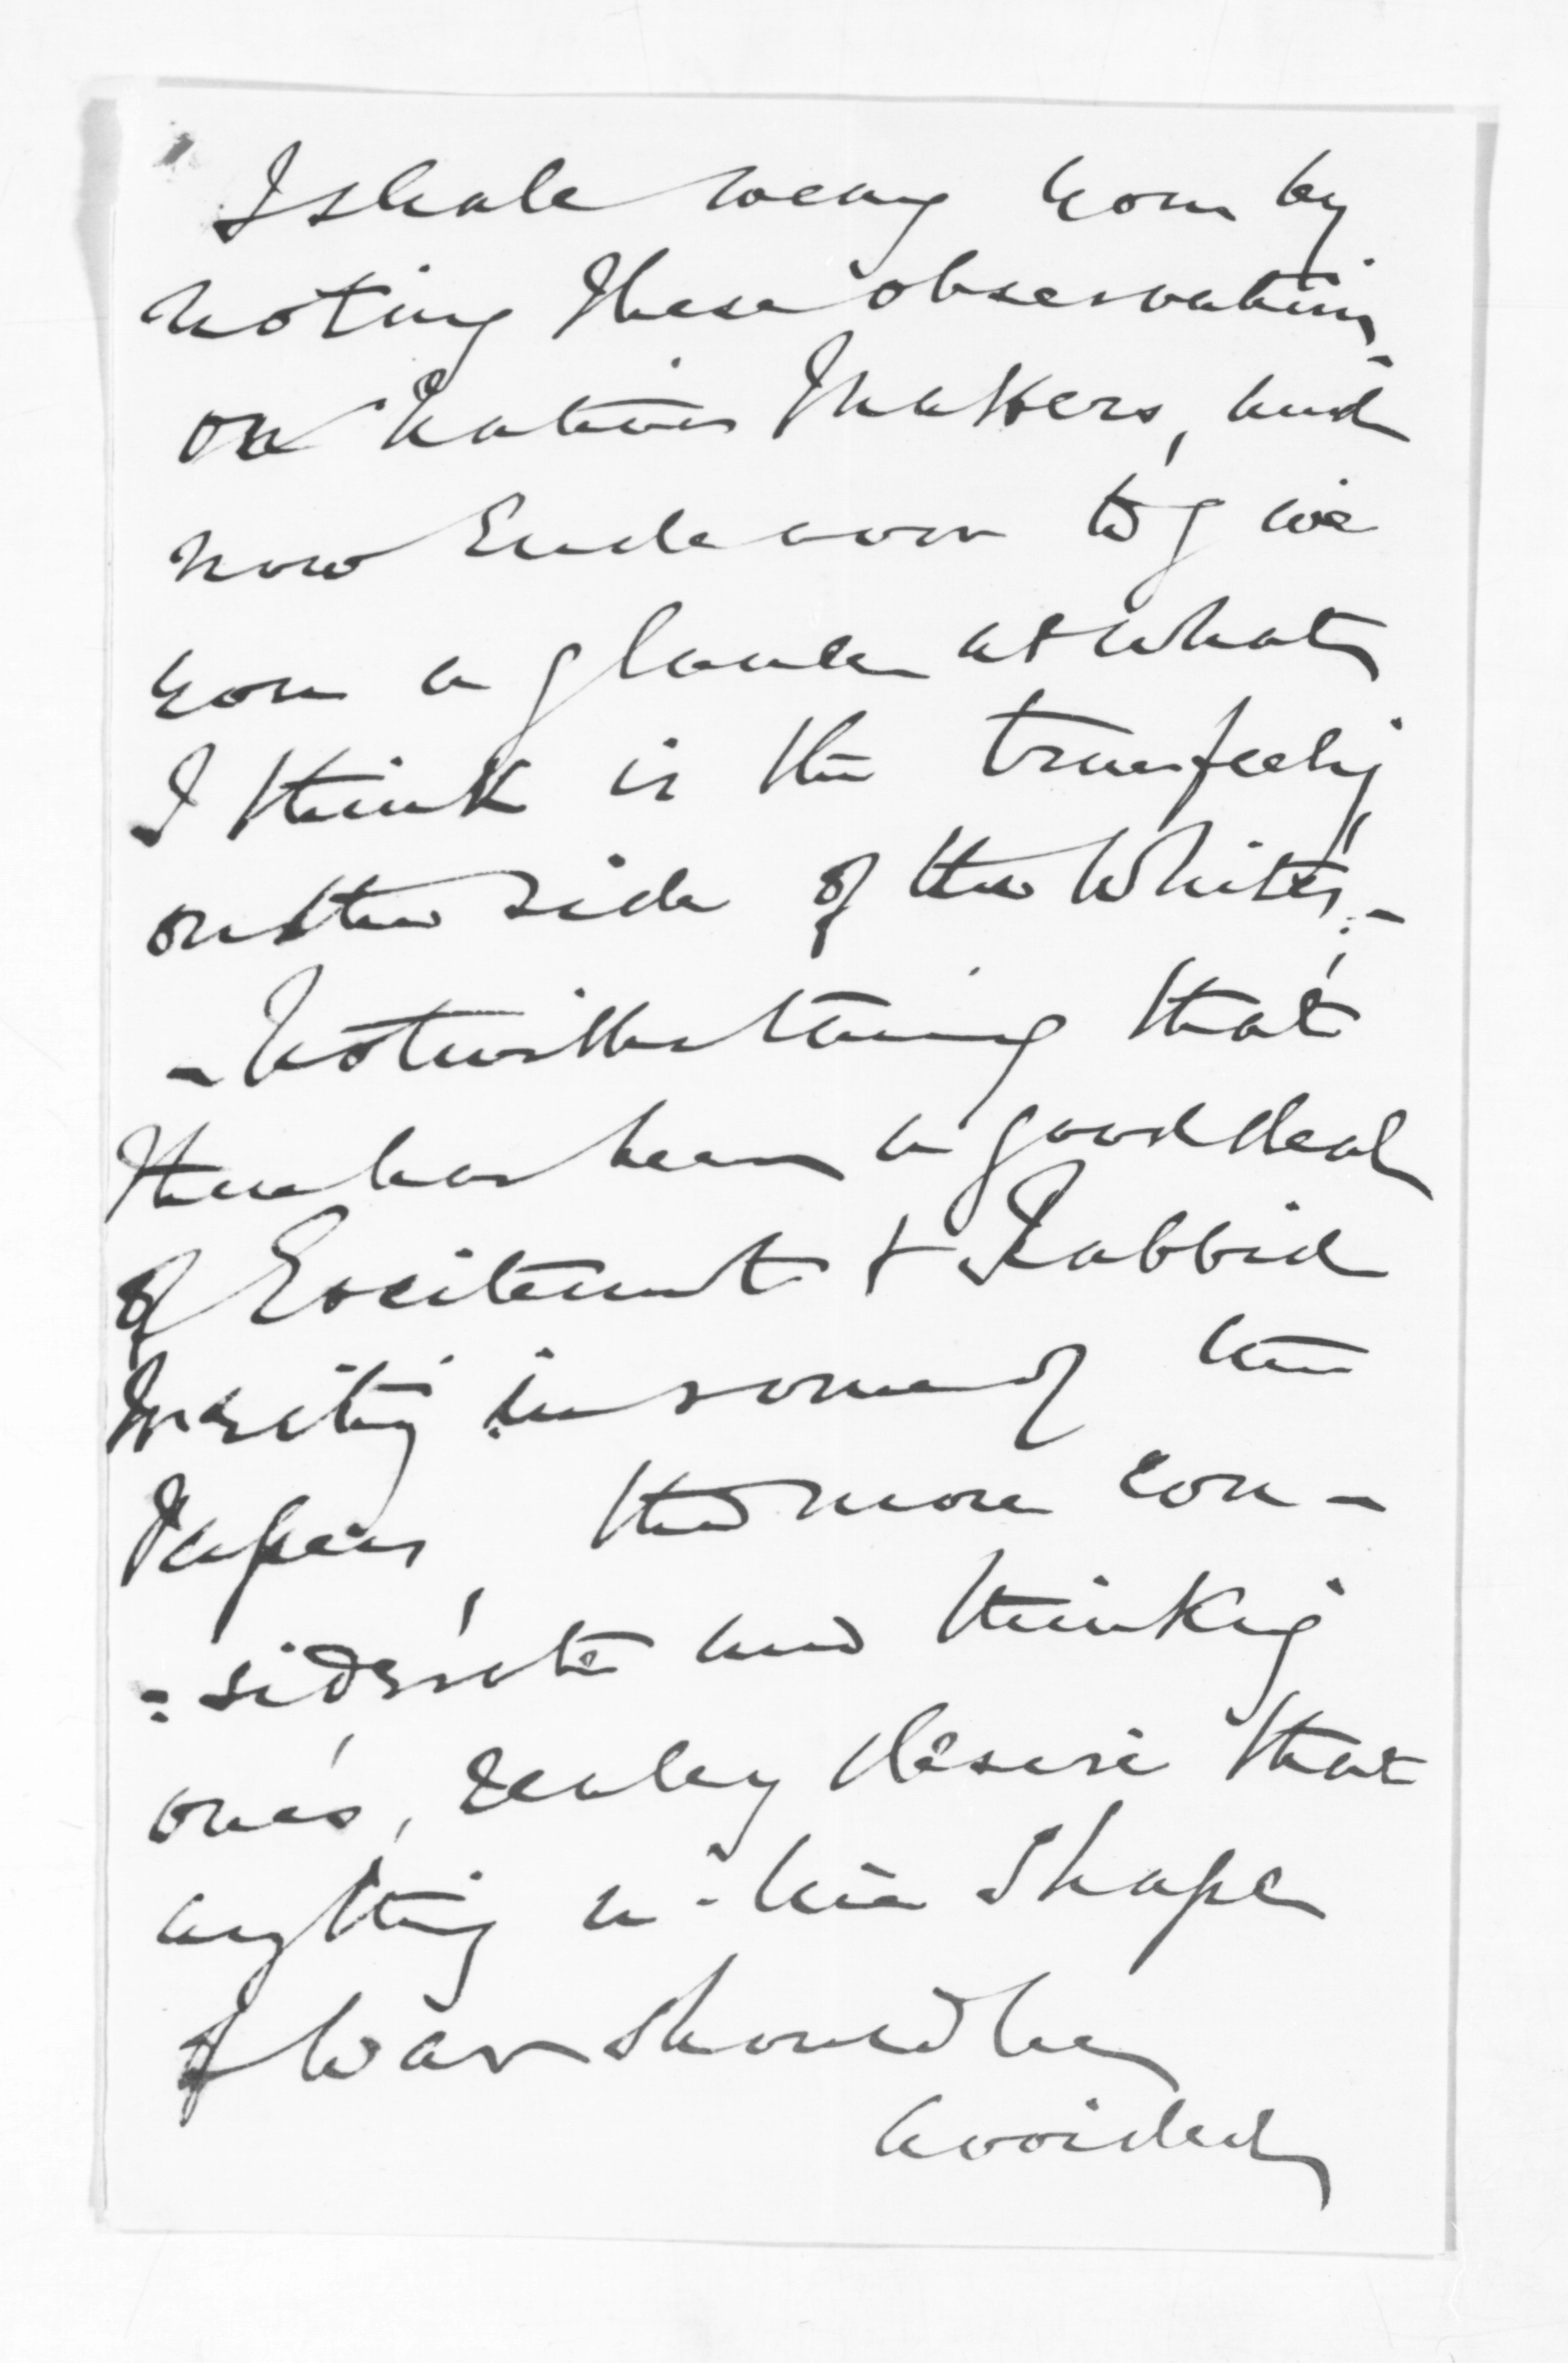 I shall weary you by
noting these observations -
on Native Matters, and
now Endeavour to give
you a glance at what
I think is the true feeling
on the side of the Whites, -
- Notwithstanding that
there has been a good deal
of Excitement & Rabbid
Writing in some of the
Papers, the more con-
- siderate and thinking
ones, really desire that
anything in the Shape
of War should be
avoided,